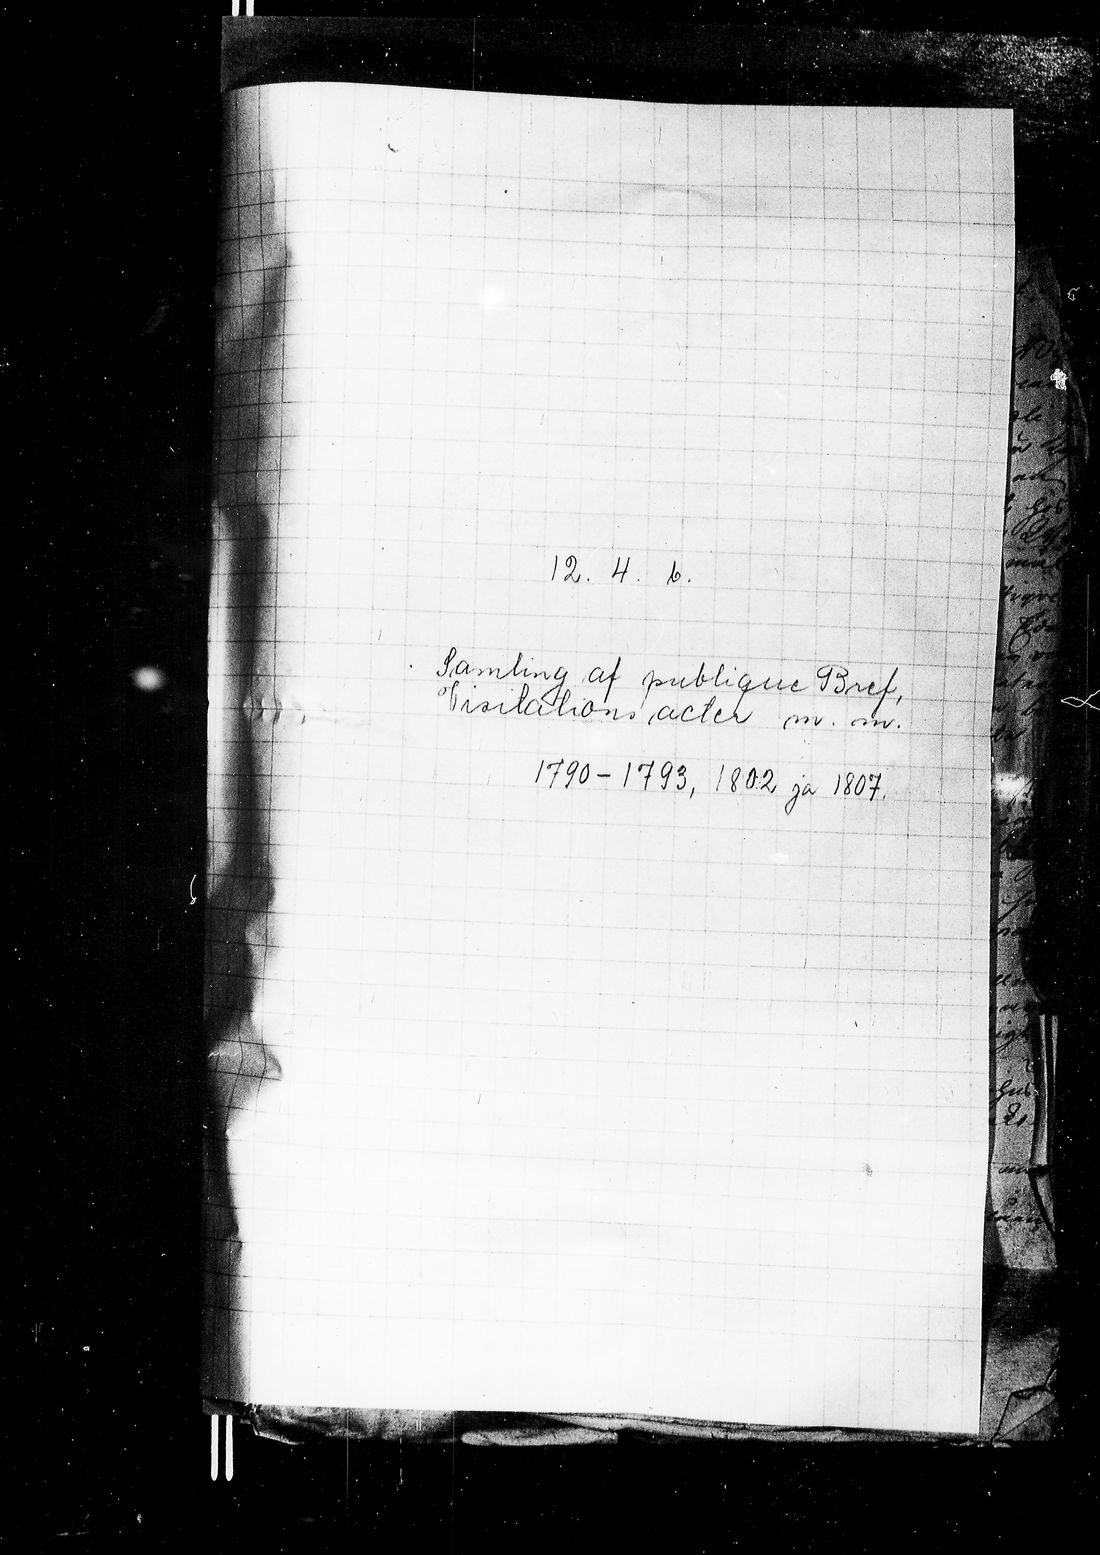 12. 4. b.
Samling af publique Bref,
Visitations acter m. m.
1790-1793, 1802 ja 1807.